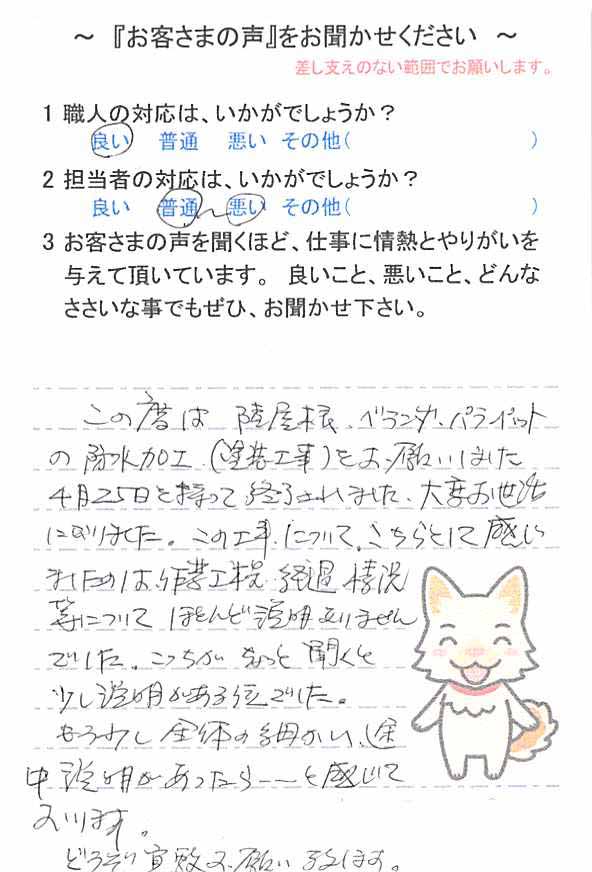 ～ 『お客さまの声』をお聞かせください ～
差し支えのない範囲でお願いします。
1 職人の対応は、いかがでしょうか？
良い 普通 悪い その他（ ）
2 担当者の対応は、いかがでしょうか？
良い 普通 ～ 悪い その他（ ）
3 お客さまの声を聞くほど、仕事に情熱とやりがいを
与えて頂いています。 良いこと、悪いこと、どんな
ささいな事でもぜひ、お聞かせ下さい。
この度は 陸屋根、ベランダ、パラペット
の防水加工（塗装工事）をお願いしました
4月25日を持って終了されました、大変お世話
になりました。この工事についてこちらとして感じ
ましたのは、作業工程、経過情況
等について ほとんど説明ありません
でした。こっちが ちょっと聞くと
少し説明がある位でした。
もう少し全体の細かい、途
中説明があったら――と感じて
おります。
どうぞ宜敷お願い致します。